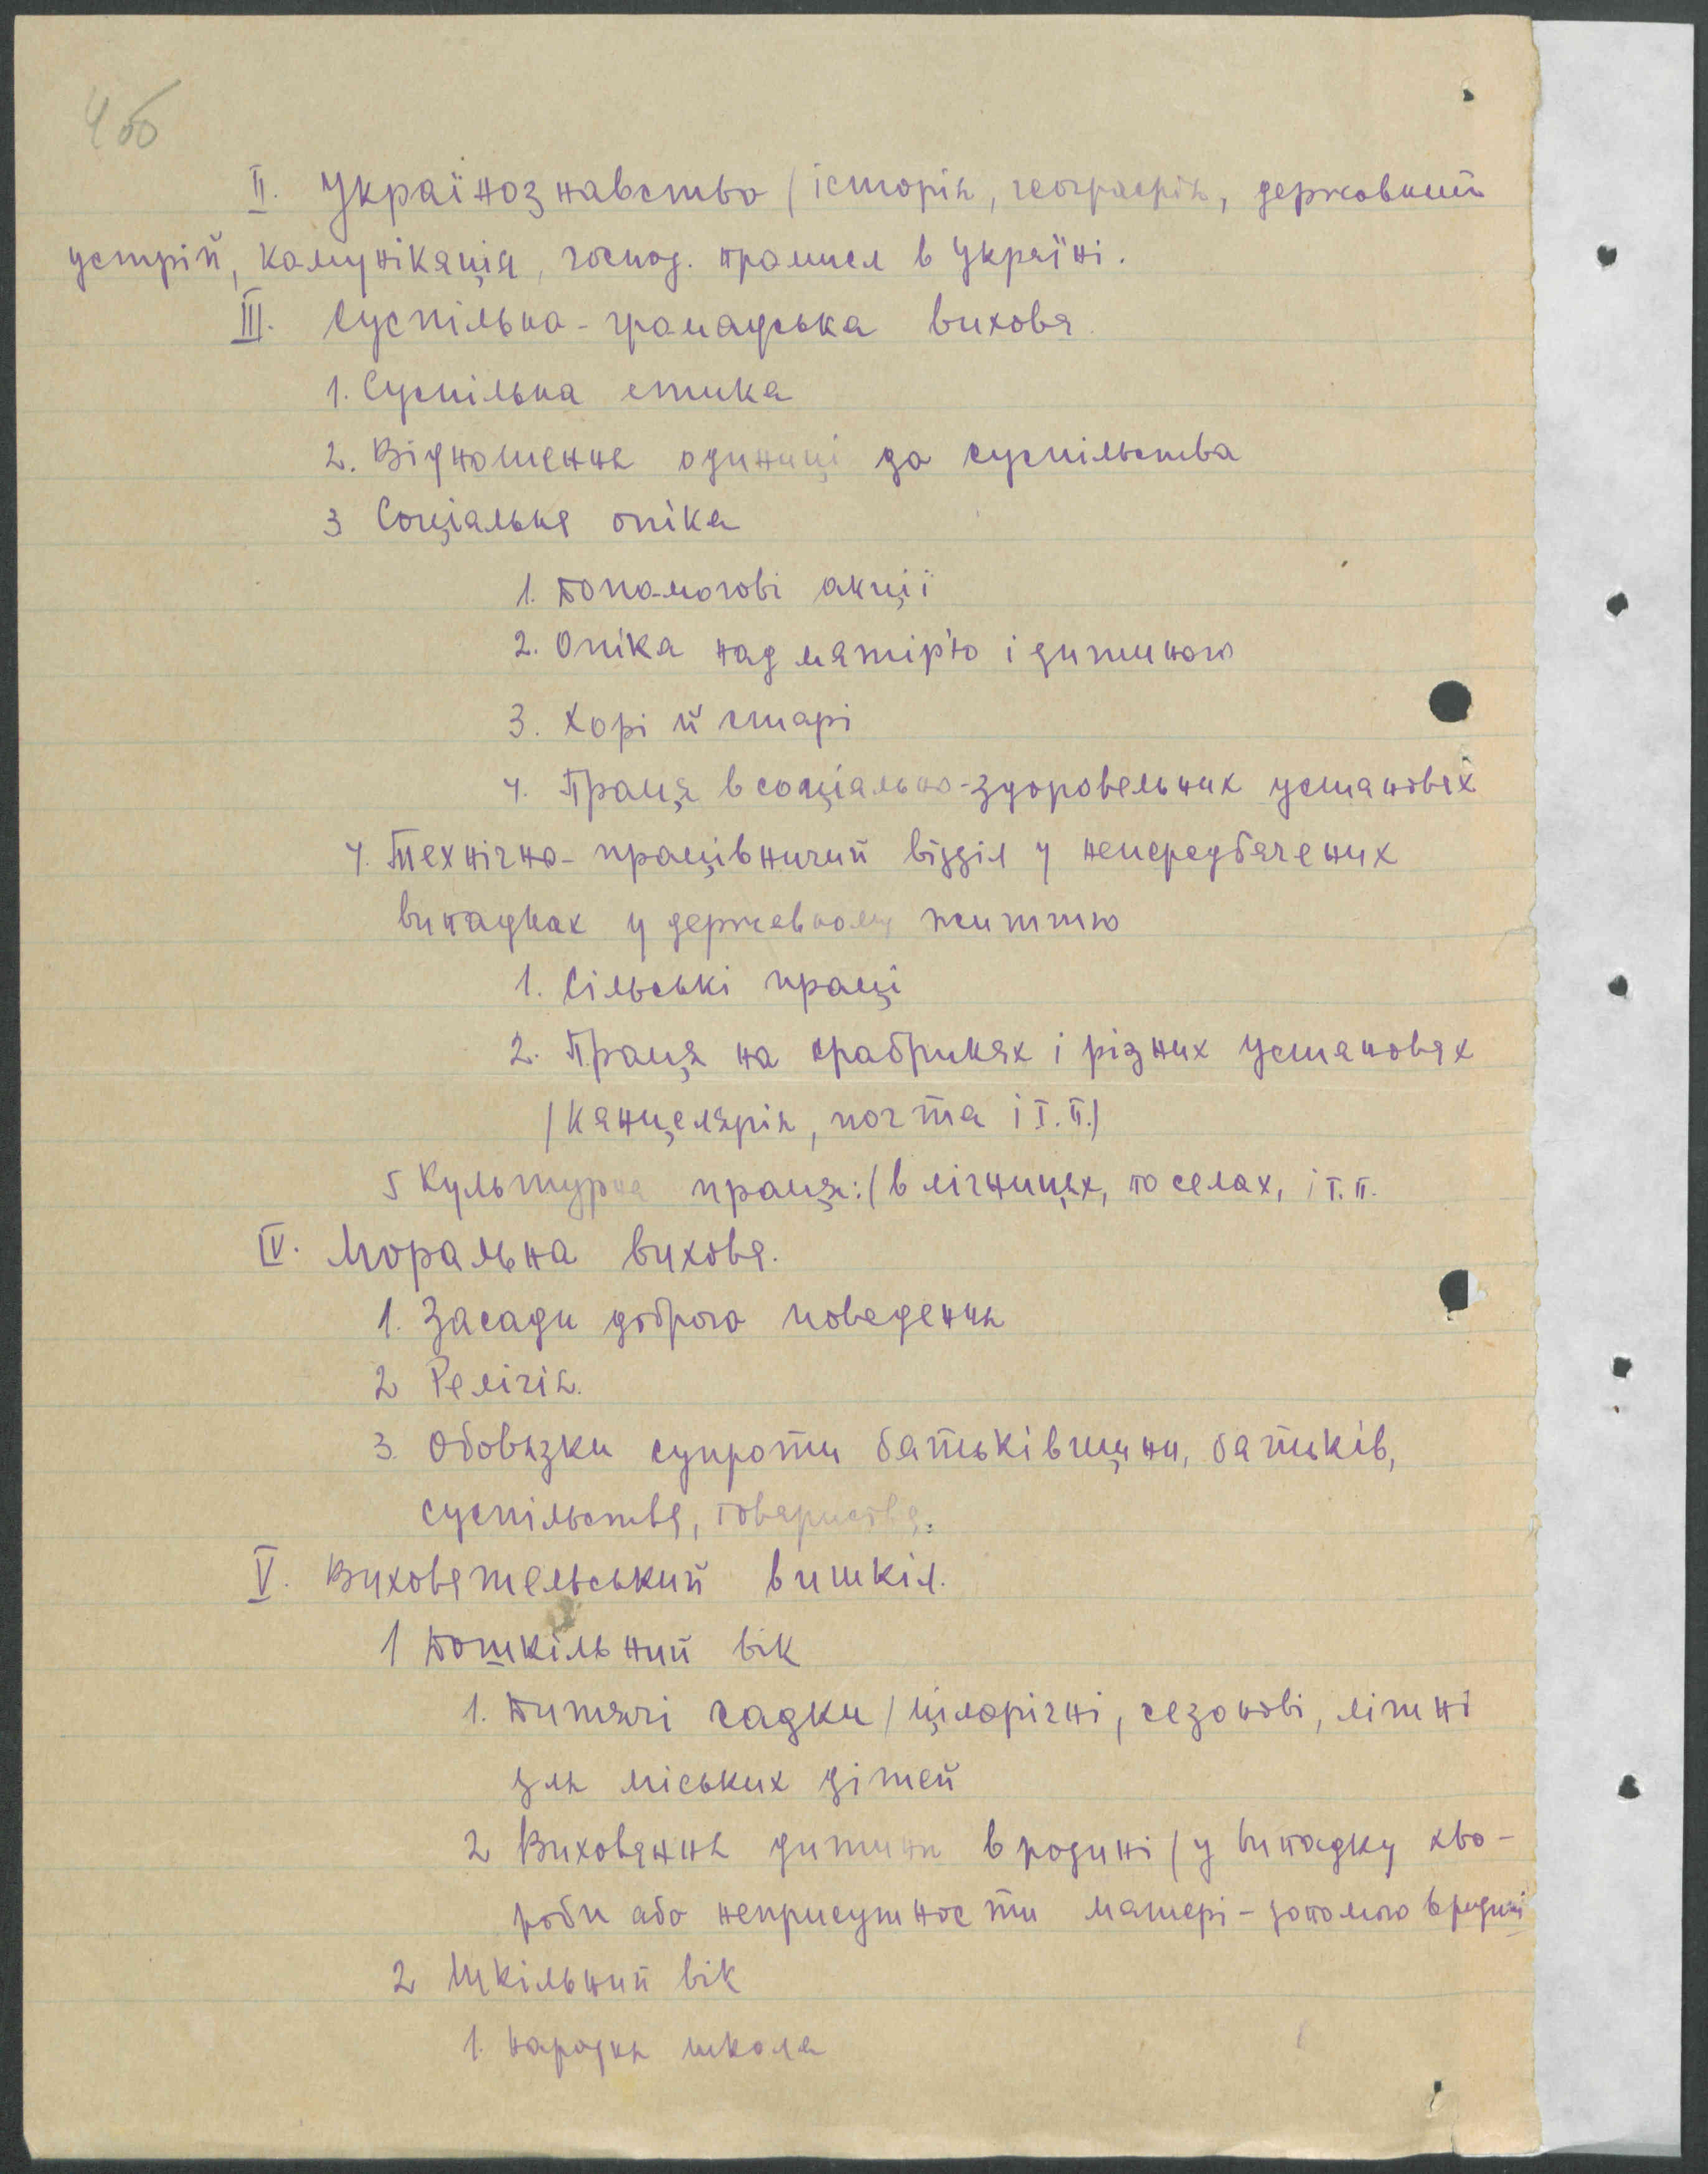 4об
II. Українознавство / історія, географія, державний
устрій, комунікація, господ. промисл в Україні.
III. Суспільно-громадська вихова.
1. Суспільна етика
2. Відношення одиниці до суспільства
3 Соціальна опіка
1. Допомогові акції
2. Опіка над матір'ю і дитиною
3. Хорі й старі
4. Праця в соціально-здоровельних установах
4. Технічно-працівничий відділ у непередбачених
випадках у державному життю
1. Сільські праці
2. Праця на фабриках і різних установах
/ Канцелярія, почта і т. п./
5 Культурна праця: / в лічницях, по селах, і т. п.
IV. Моральна вихова.
1. Засади доброго поведення
2 Релігія.
3. Обовязки супроти батьківщини, батьків,
суспільства, товариства.
V. Виховательський вишкіл.
1 Дошкільний вік
1. Дитячі садки / цілорічні, сезонові, літні
для міських дітей
2 Виховання дитини в родині / у випадку хво-
роби або неприсутности матері - допомога в родині
2 Шкільний вік
1. народня школа